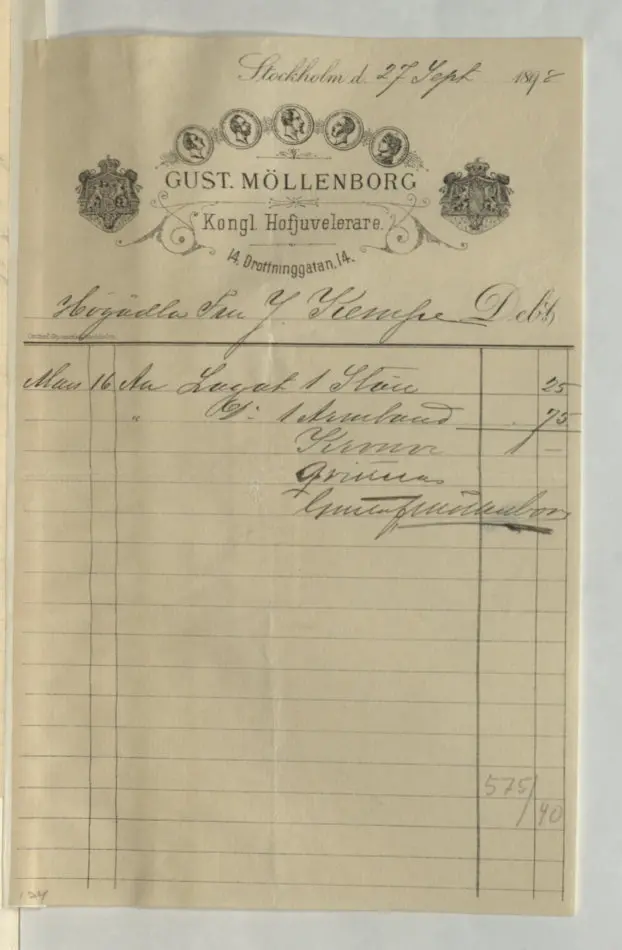 Stockholm d. 27 Sept 1898
GUST. MÖLLENBORG
Kongl. Hofjuvelerare.
14, Drottninggatan, 14.
Högädla Fru J. Kempe Debet
Mars 16 An Lagat 1 25
" D:o 1 Armband 75
Kronor 1 –
Qvitteras
Gustaf Möllenborg
575/40